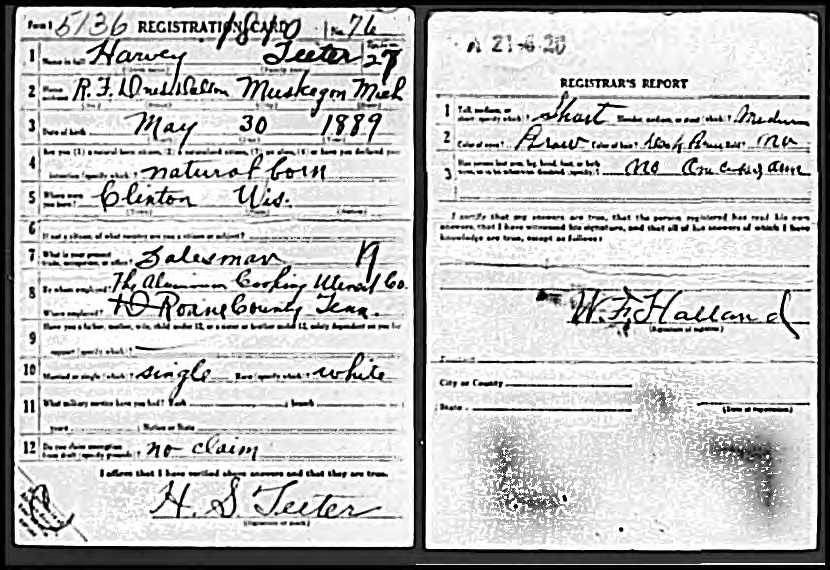 Form 1 5136 REGISTRATION CARD No. 76
1 Harvey Teeter 27
Name in full
Age, in yrs.
2 R.F.D. Muskegon Mich
3 Date of birth May 30 1889
4 Are you (1) a natural-born citizen, (2) a naturalized citizen, (3) an alien, (4) or have you declared your
intention (specify which)? natural born
5 Where were you born? Clinton Wis.
6 If not a citizen, of what country are you a citizen or subject?
7 What is your present trade, occupation, or office? Salesman 19
8 By whom employed? The Aluminum Cooking Utensil Co.
Where employed? Roane County Tenn.
9 Have you a father, mother, wife, child under 12, or a sister or brother under 12, solely dependent on you for
support (specify which)?
10 Married or single (which)? single Race (specify which)? white
11 What military service have you had? Rank branch
years Nation or State
12 Do you claim exemption from draft (specify grounds)? no claim
I affirm that I have verified above answers and that they are true.
H. S. Teeter
(Signature or mark)
21-6-20
REGISTRAR'S REPORT
1 Tall, medium, or short (specify which)? Short Slender, medium, or stout (which)? Medium
2 Color of eyes? Brown Color of hair? Bald? No
3 Has person lost arm, leg, hand, foot, or both eyes, or is he otherwise disabled (specify)? No
I certify that my answers are true, that the person registered has read his own
answers, that I have witnessed his signature, and that all of his answers of which I have
knowledge are true, except as follows:
W. F. Halland
(Signature of registrar)
Precinct
City or County
State
(Date of registration)